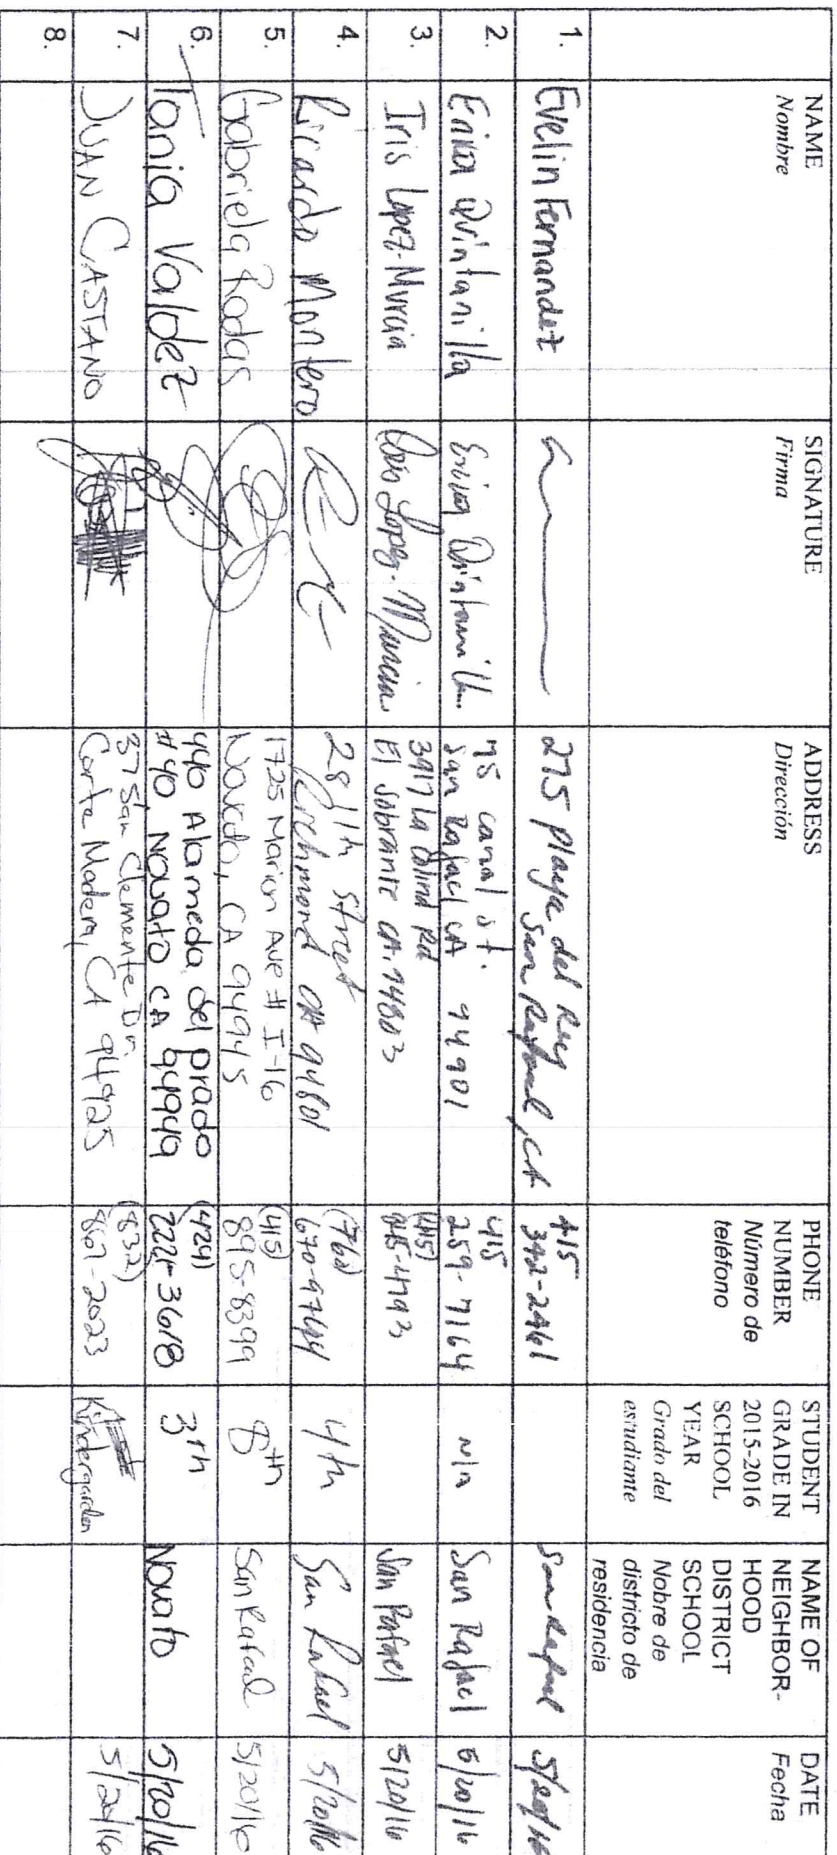 NAME
Nombre
SIGNATURE
Firma
ADDRESS
Dirección
PHONE
NUMBER
Número de
teléfono
STUDENT
GRADE IN
2015-2016
SCHOOL
YEAR
Grado del
estudiante
NAME OF
NEIGHBOR-
HOOD
DISTRICT
SCHOOL
Nobre de
districto de
residencia
DATE
Fecha
1.
Evelin Fernandez
275 playa del Rey
San Rafael, CA
415
342-2461
San Rafael
5/20/16
2.
Erika Quintanilla
Erika Quintanilla
75 canal st.
San Rafael CA 94901
415
259-7164
N/A
San Rafael
5/20/16
3.
Iris Lopez-Murcia
Iris Lopez-Murcia
3917 La Rd
El Sobrante CA. 94803
(415)
San Rafael
5/20/16
4.
Ricardo Montero
28 11th street
Richmond CA 94801
(760)
670-9744
4th
San Rafael
5/20/16
5.
Gabriela Rodas
1725 Marion Ave # I-16
Novato, CA 94945
(415)
895-8399
8th
San Rafael
5/20/16
6.
Tania Valdez
440 Alameda del prado
#40 Novato CA 94949
(424)
3th
Novato
5/20/16
7.
JUAN CASTANO
37 San Clemente Dr.
Corte Madera, CA 94925
(832)
867-2023
Kindergarden
5/20/16
8.